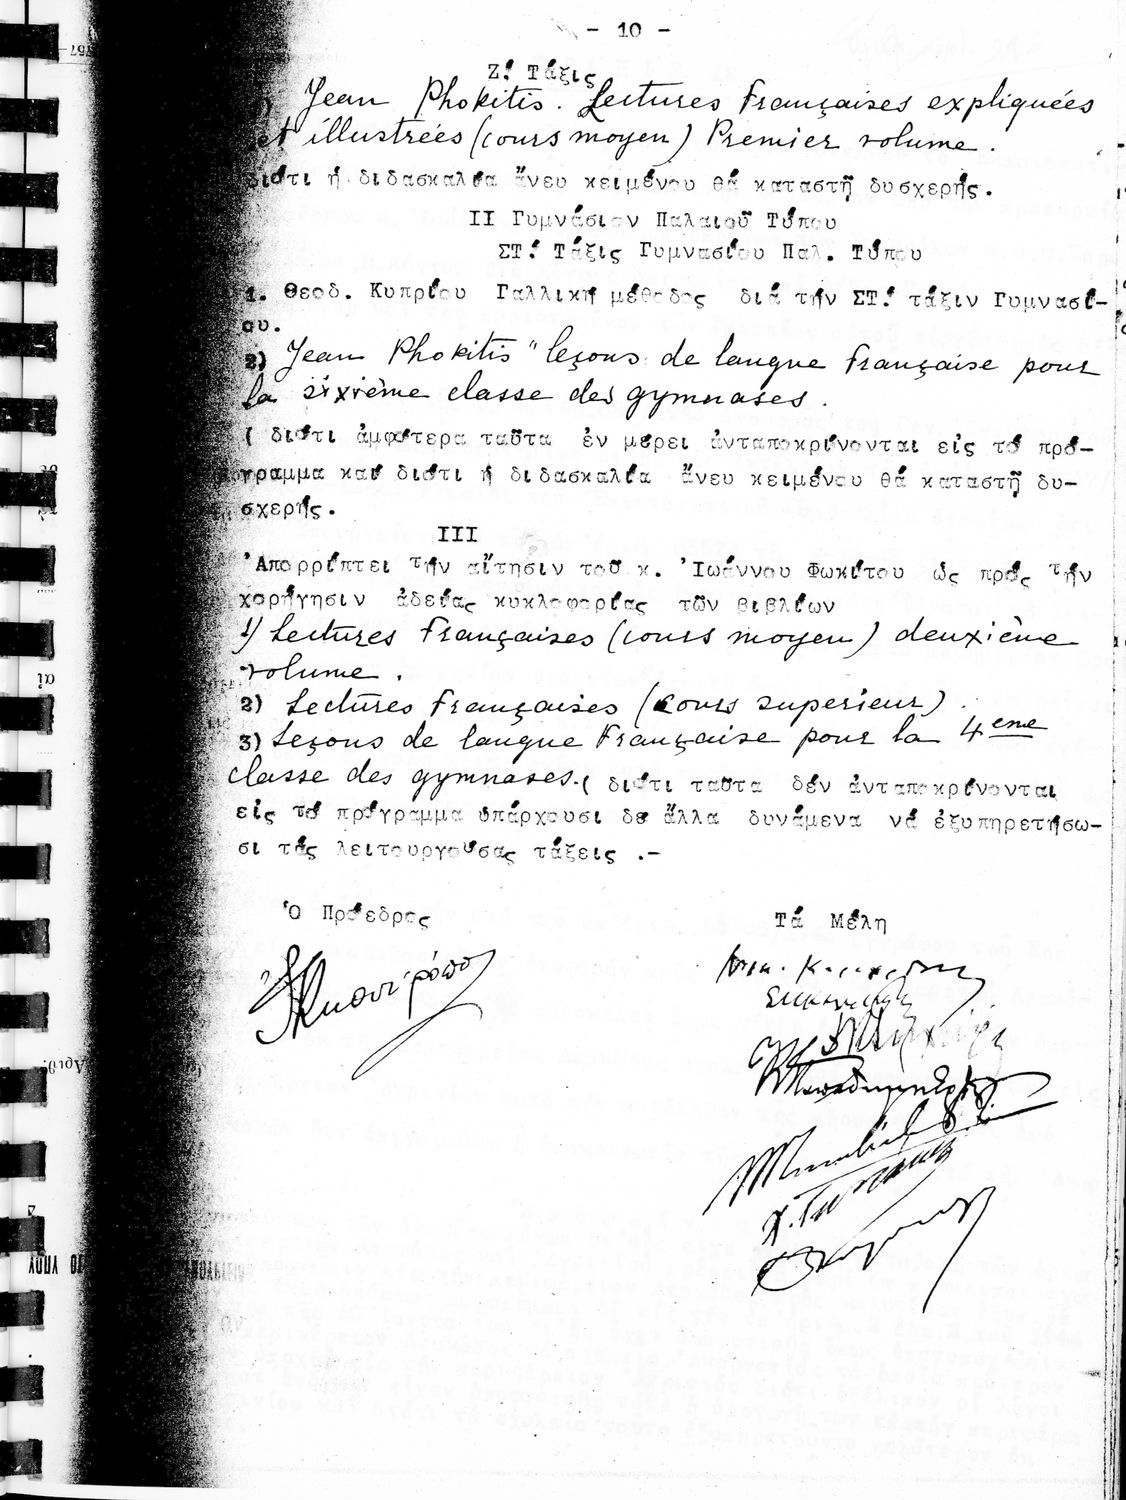 - 10 -
Ζ! Τάξις
Jean Phokitis. Lectures Françaises expliquées
et illustrées (cours moyen) Premier volume.
διότι ἡ διδασκαλία ἄνευ κειμένου θά καταστῇ δυσχερής.
ΙΙ Γυμνάσιον Παλαιοῦ Τύπου
ΣΤ! Τάξις Γυμνασίου Παλ. Τύπου
1. Θεοδ. Κυπρίου Γαλλική μέθοδος διά τήν ΣΤ! τάξιν Γυμνασί-
ου.
2) Jean Phokitis " leçons de langue française pour
la sixième classe des gymnases.
( διότι ἀμφότερα ταῦτα ἐν μέρει ἀνταποκρίνονται εἰς τό πρό-
γραμμα καί διότι ἡ διδασκαλία ἄνευ κειμένου θά καταστῇ δυ-
σχερής.
ΙΙΙ
Ἀπορρίπτει τήν αἴτησιν τοῦ κ. Ἰωάννου Φωκίτου ὡς πρός τήν
χορήγησιν ἀδείας κυκλοφορίας τῶν βιβλίων
1) Lectures Françaises (cours moyen) deuxième
volume.
2) Lectures françaises (cours superieur).
3) Leçons de langue Française pour la 4eme
classe des gymnases. ( διότι ταῦτα δέν ἀνταποκρίνονται
εἰς τό πρόγραμμα ὑπάρχουσι δέ ἄλλα δυνάμενα νά ἐξυπηρετήσω-
σι τάς λειτουργούσας τάξεις .-
Ὁ Πρόεδρος
Τά Μέλη